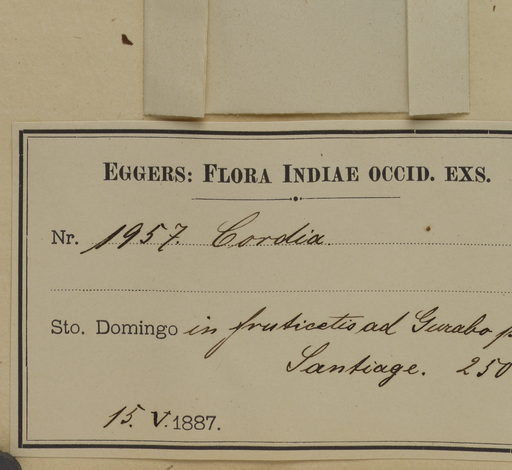 EGGERS: FLORA INDIAE OCCID. EXS.
Nr. 1957. Cordia.
Sto. Domingo in fruticetis ad Gurabo p
Santiage. 250
15. V. 1887.